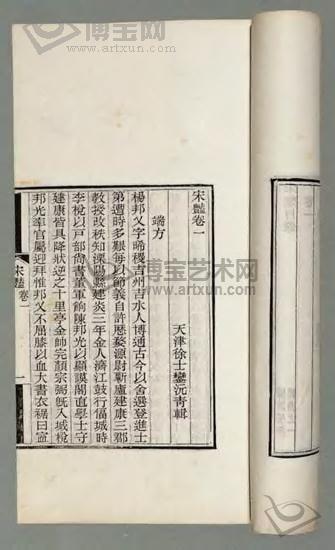 博宝艺术网
www.artxun.com
宋豔卷一
天津徐士鑾沅青輯
端方
楊邦乂字晞稷吉州吉水人博通古今以舍選登進士
第遭時多艱每以節義自許歷婺源尉蘄廬建康三郡
教授改秩知溧陽縣建炎三年金人濟江鼓行偪城時
李梲以戶部尚書董軍餉陳邦光以顯謨閣直學士守
建康皆具降狀逆之十里亭金帥完顏宗弼旣入城梲
邦光率官屬迎拜惟邦乂不屈膝以血大書衣裾曰寧
宋豔卷一
一